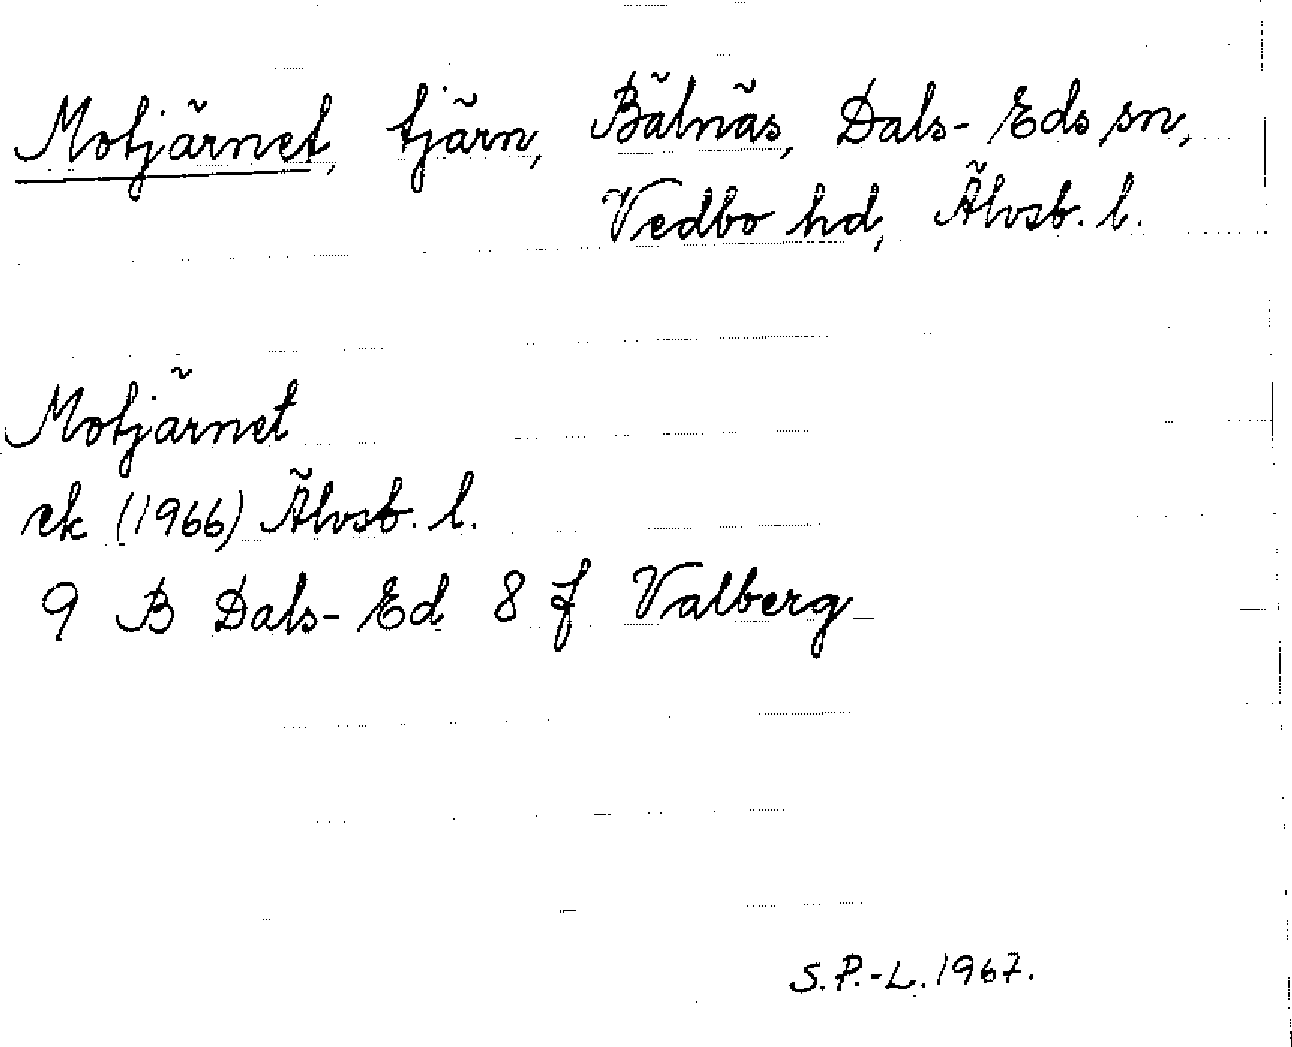 Motjärnet, tjärn, Bälnäs, Dals-Eds sn,
Vedbo hd, Älvsb. l.
Motjärnet
ek (1966) Älvsb. l.
9 B Dals-Ed 8 f Valberg
S.P.-L. 1967.